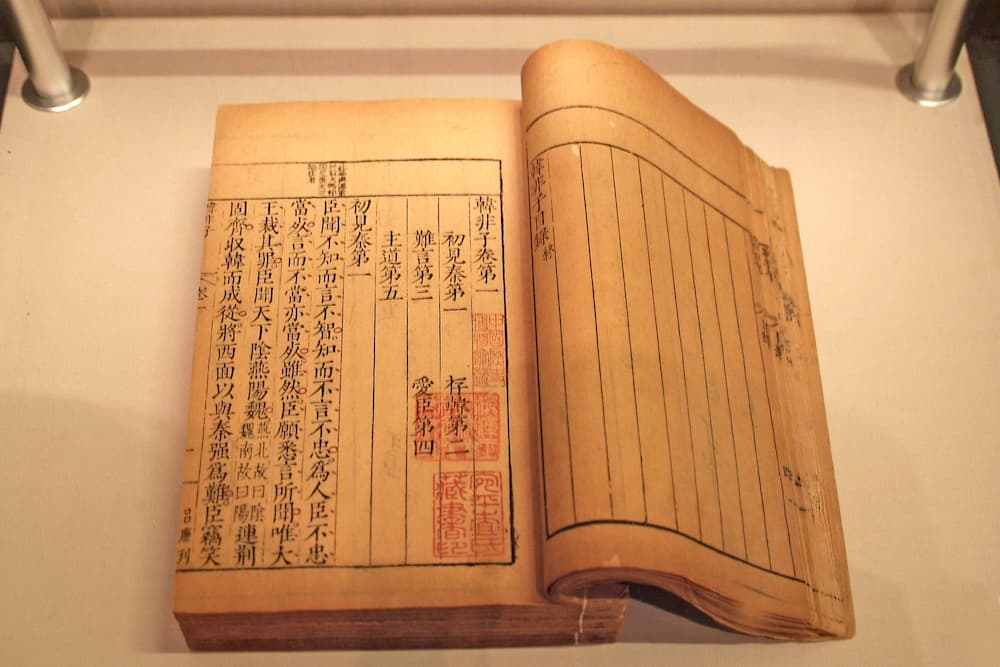 韓非子目録終
韓非子卷第一
初見秦第一　存韓第二
難言第三　愛臣第四
主道第五
初見秦第一
臣聞不知而言不智知而不言不忠爲人臣不忠
當死言而不當亦當死雖然臣願悉言所聞唯大
王裁其罪臣聞天下陰燕陽魏燕北故曰陰魏南故曰陽連荆
固齊収韓而成從將西面以與秦强爲難臣竊笑
藏書印